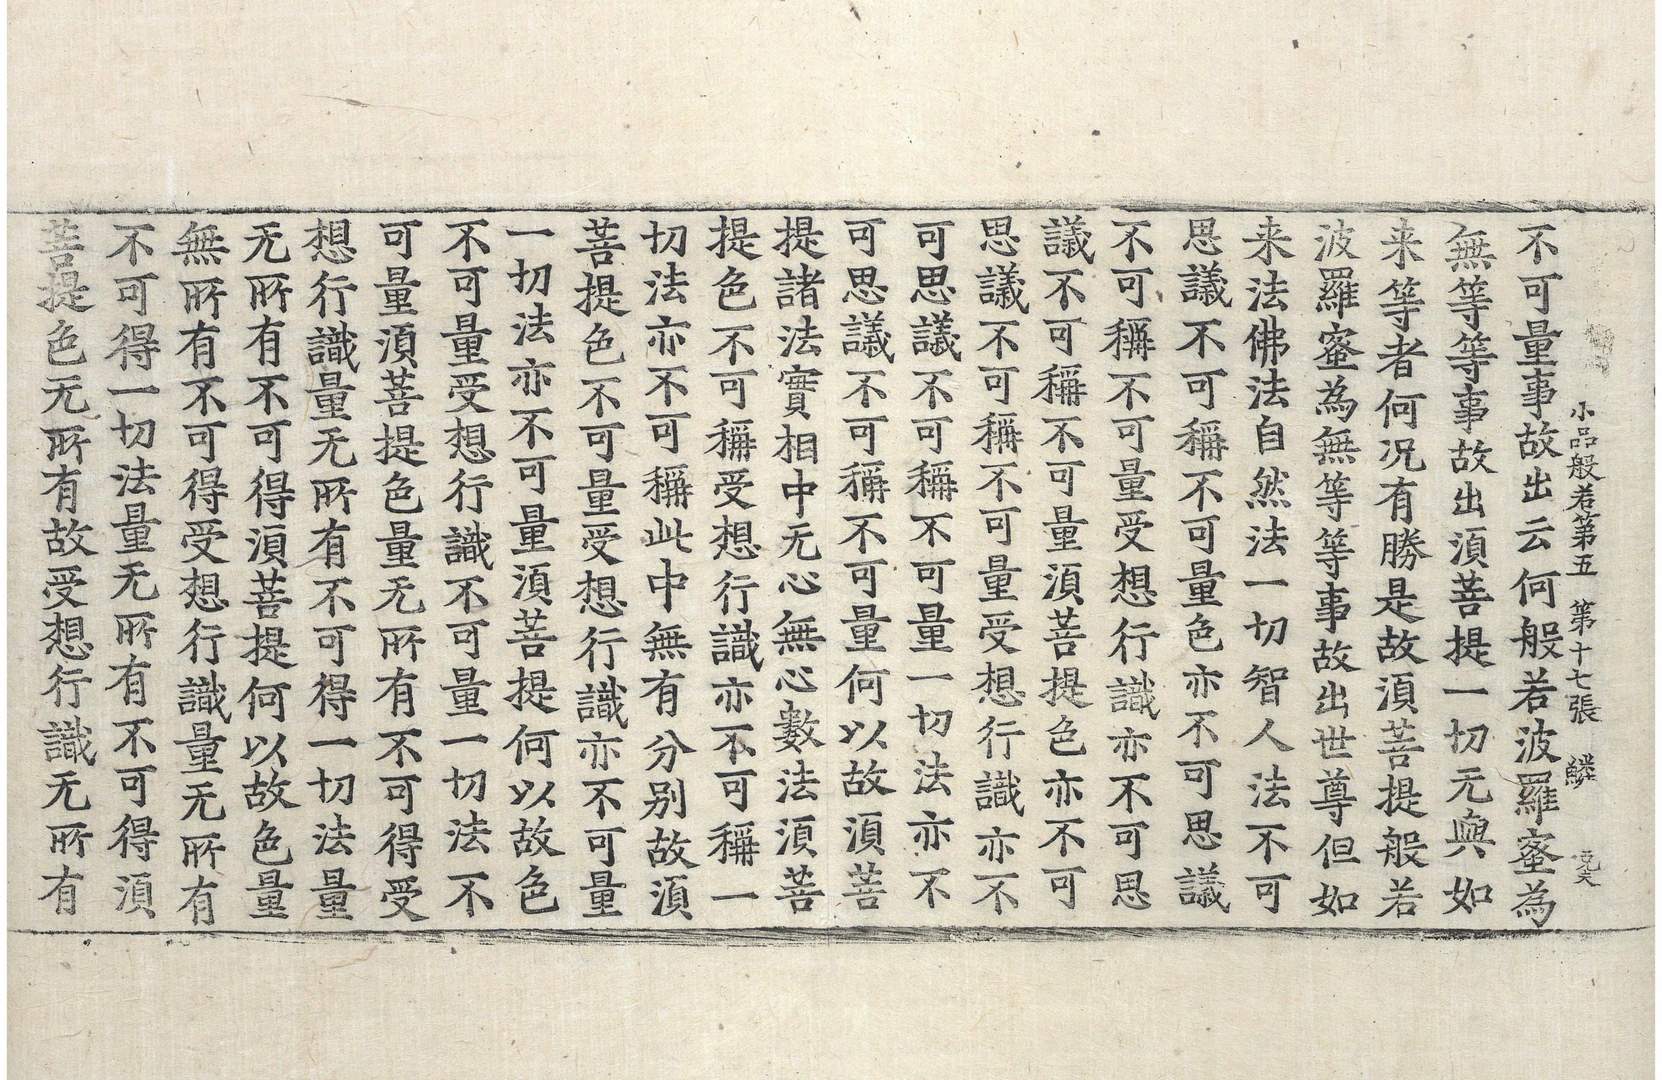 小品般若第五 第十七張 鱗
不可量事故出云何般若波羅蜜為
無等等事故出湏菩提一切无與如
来等者何况有勝是故湏菩提般若
波羅蜜為無等等事故出世尊但如
来法佛法自然法一切智人法不可
思議不可稱不可量色亦不可思議
不可稱不可量受想行識亦不可思
議不可稱不可量湏菩提色亦不可
思議不可稱不可量受想行識亦不
可思議不可稱不可量一切法亦不
可思議不可稱不可量何以故湏菩
提諸法實相中无心無心數法湏菩
提色不可稱受想行識亦不可稱一
切法亦不可稱此中無有分別故湏
菩提色不可量受想行識亦不可量
一切法亦不可量湏菩提何以故色
不可量受想行識不可量一切法不
可量湏菩提色量无所有不可得受
想行識量无所有不可得一切法量
无所有不可得湏菩提何以故色量
無所有不可得受想行識量无所有
不可得一切法量无所有不可得湏
菩提色无所有故受想行識无所有